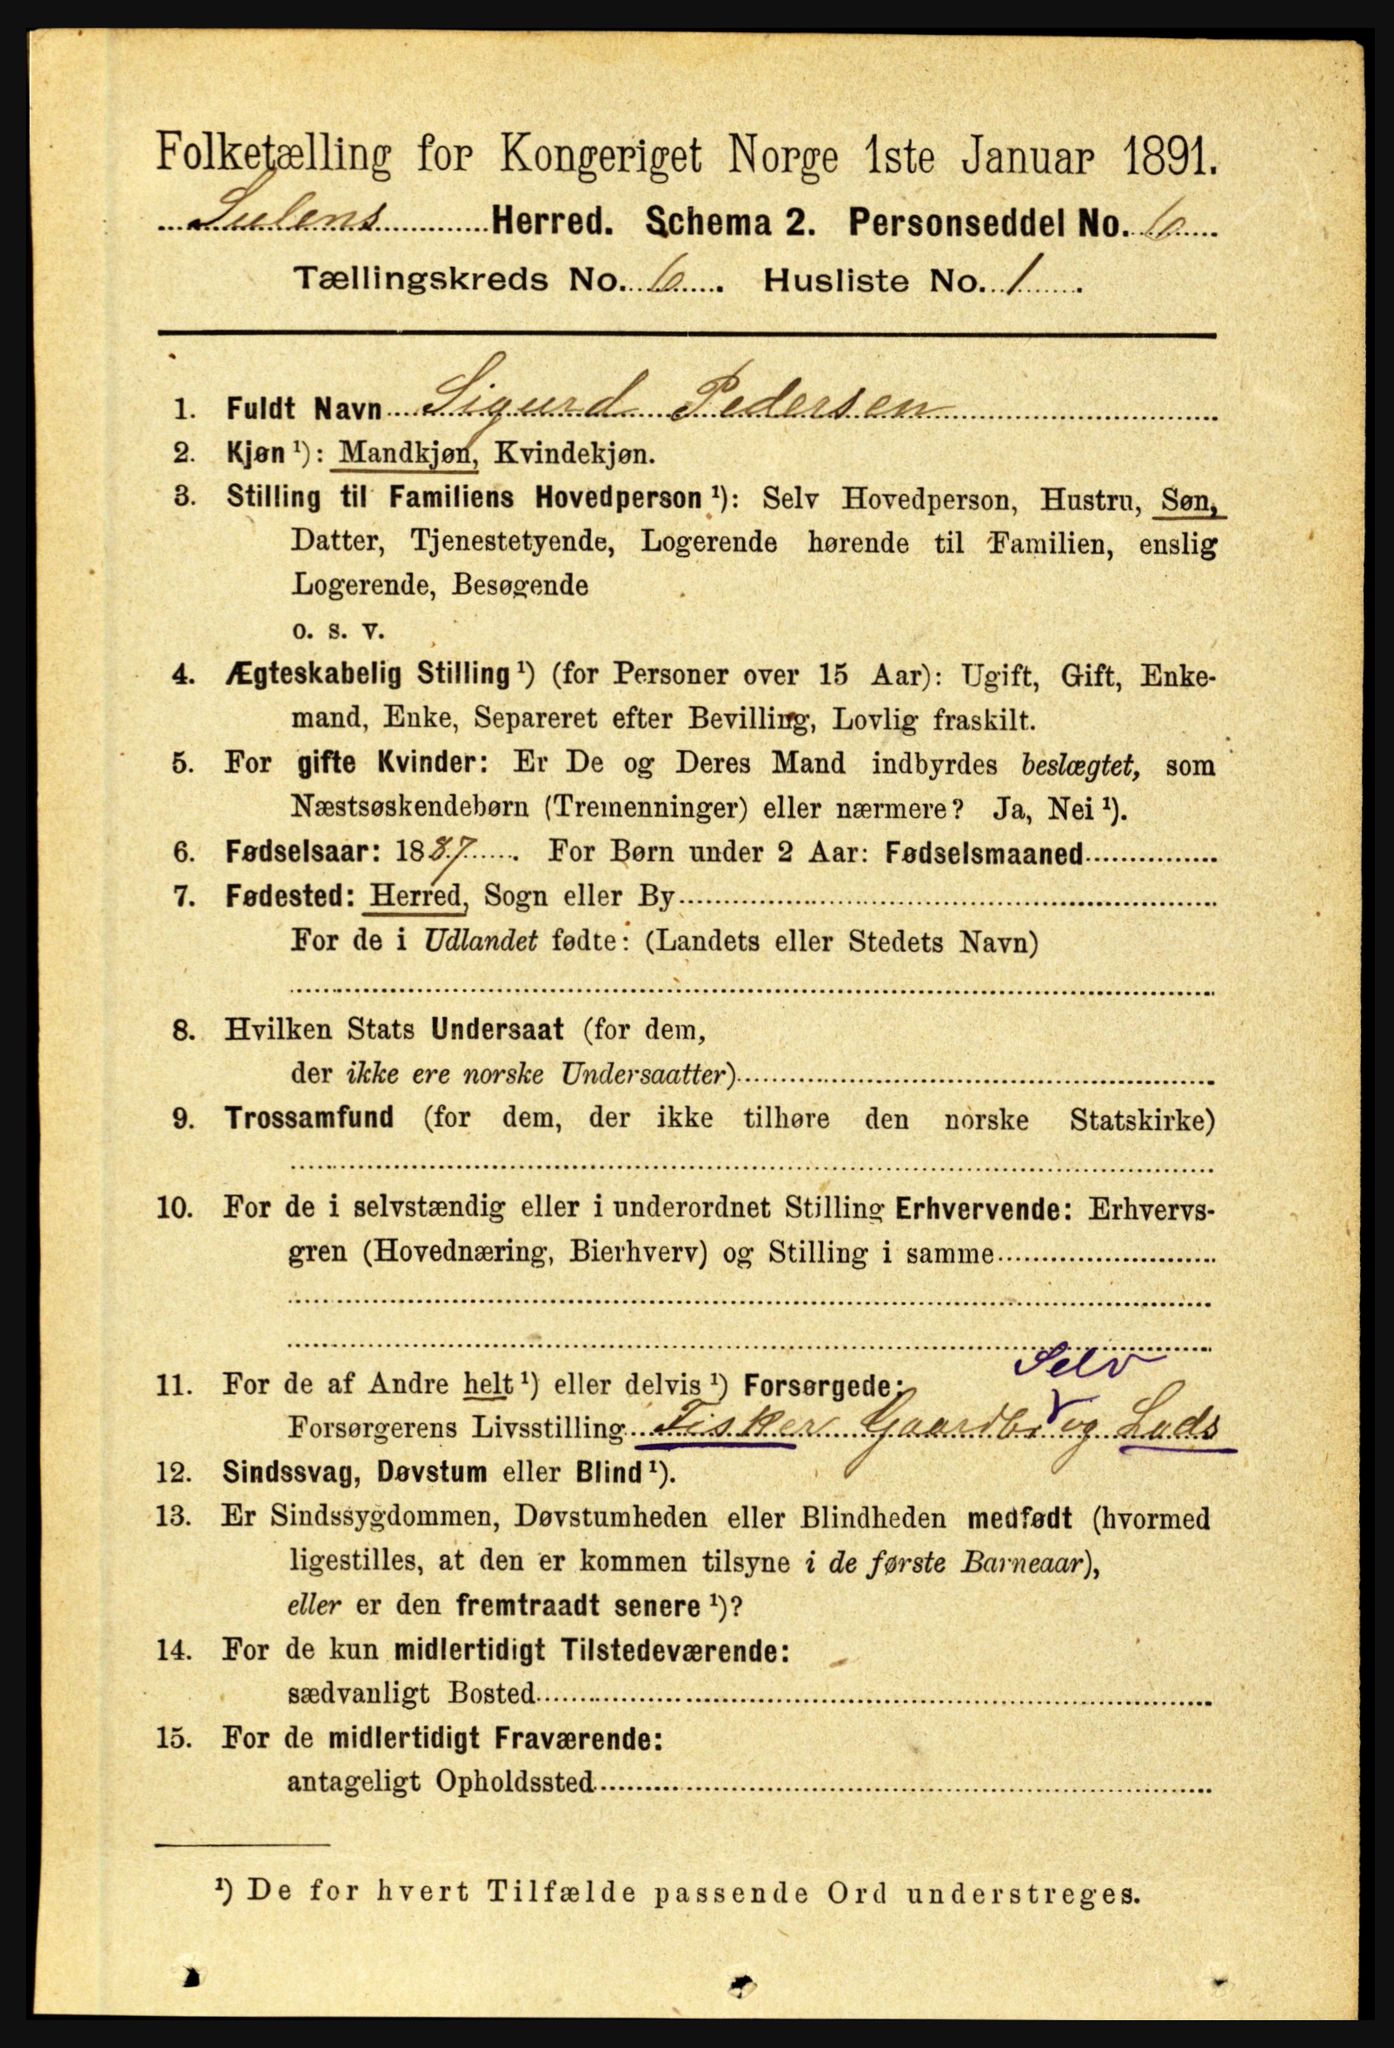 Folketælling for Kongeriget Norge 1ste Januar 1891.
Sulens Herred. Schema 2. Personseddel No. 6
Tællingskreds No. 6. Husliste No. 1.
1. Fuldt Navn Sigurd Pedersen
2. Kjøn ¹): Mandkjøn, Kvindekjøn.
3. Stilling til Familiens Hovedperson ¹): Selv Hovedperson, Hustru, Søn,
Datter, Tjenestetyende, Logerende hørende til Familien, enslig
Logerende, Besøgende
o. s. v.
4. Ægteskabelig Stilling ¹) (for Personer over 15 Aar): Ugift, Gift, Enke-
mand, Enke, Separeret efter Bevilling, Lovlig fraskilt.
5. For gifte Kvinder: Er De og Deres Mand indbyrdes beslægtet, som
Næstsøskendebørn (Tremenninger) eller nærmere? Ja, Nei ¹).
6. Fødselsaar: 1887. For Børn under 2 Aar: Fødselsmaaned
7. Fødested: Herred, Sogn eller By
For de i Udlandet fødte: (Landets eller Stedets Navn)
8. Hvilken Stats Undersaat (for dem,
der ikke ere norske Undersaatter)
9. Trossamfund (for dem, der ikke tilhøre den norske Statskirke)
10. For de i selvstændig eller i underordnet Stilling Erhvervende: Erhvervs-
gren (Hovednæring, Bierhverv) og Stilling i samme
Selv
11. For de af Andre helt ¹) eller delvis ¹) Forsørgede:
Forsørgerens Livsstilling Fisker Gaardbr og Lods
12. Sindssvag, Døvstum eller Blind ¹).
13. Er Sindssygdommen, Døvstumheden eller Blindheden medfødt (hvormed
ligestilles, at den er kommen tilsyne i de første Barneaar),
eller er den fremtraadt senere ¹)?
14. For de kun midlertidigt Tilstedeværende:
sædvanligt Bosted
15. For de midlertidigt Fraværende:
antageligt Opholdssted
¹) De for hvert Tilfælde passende Ord understreges.